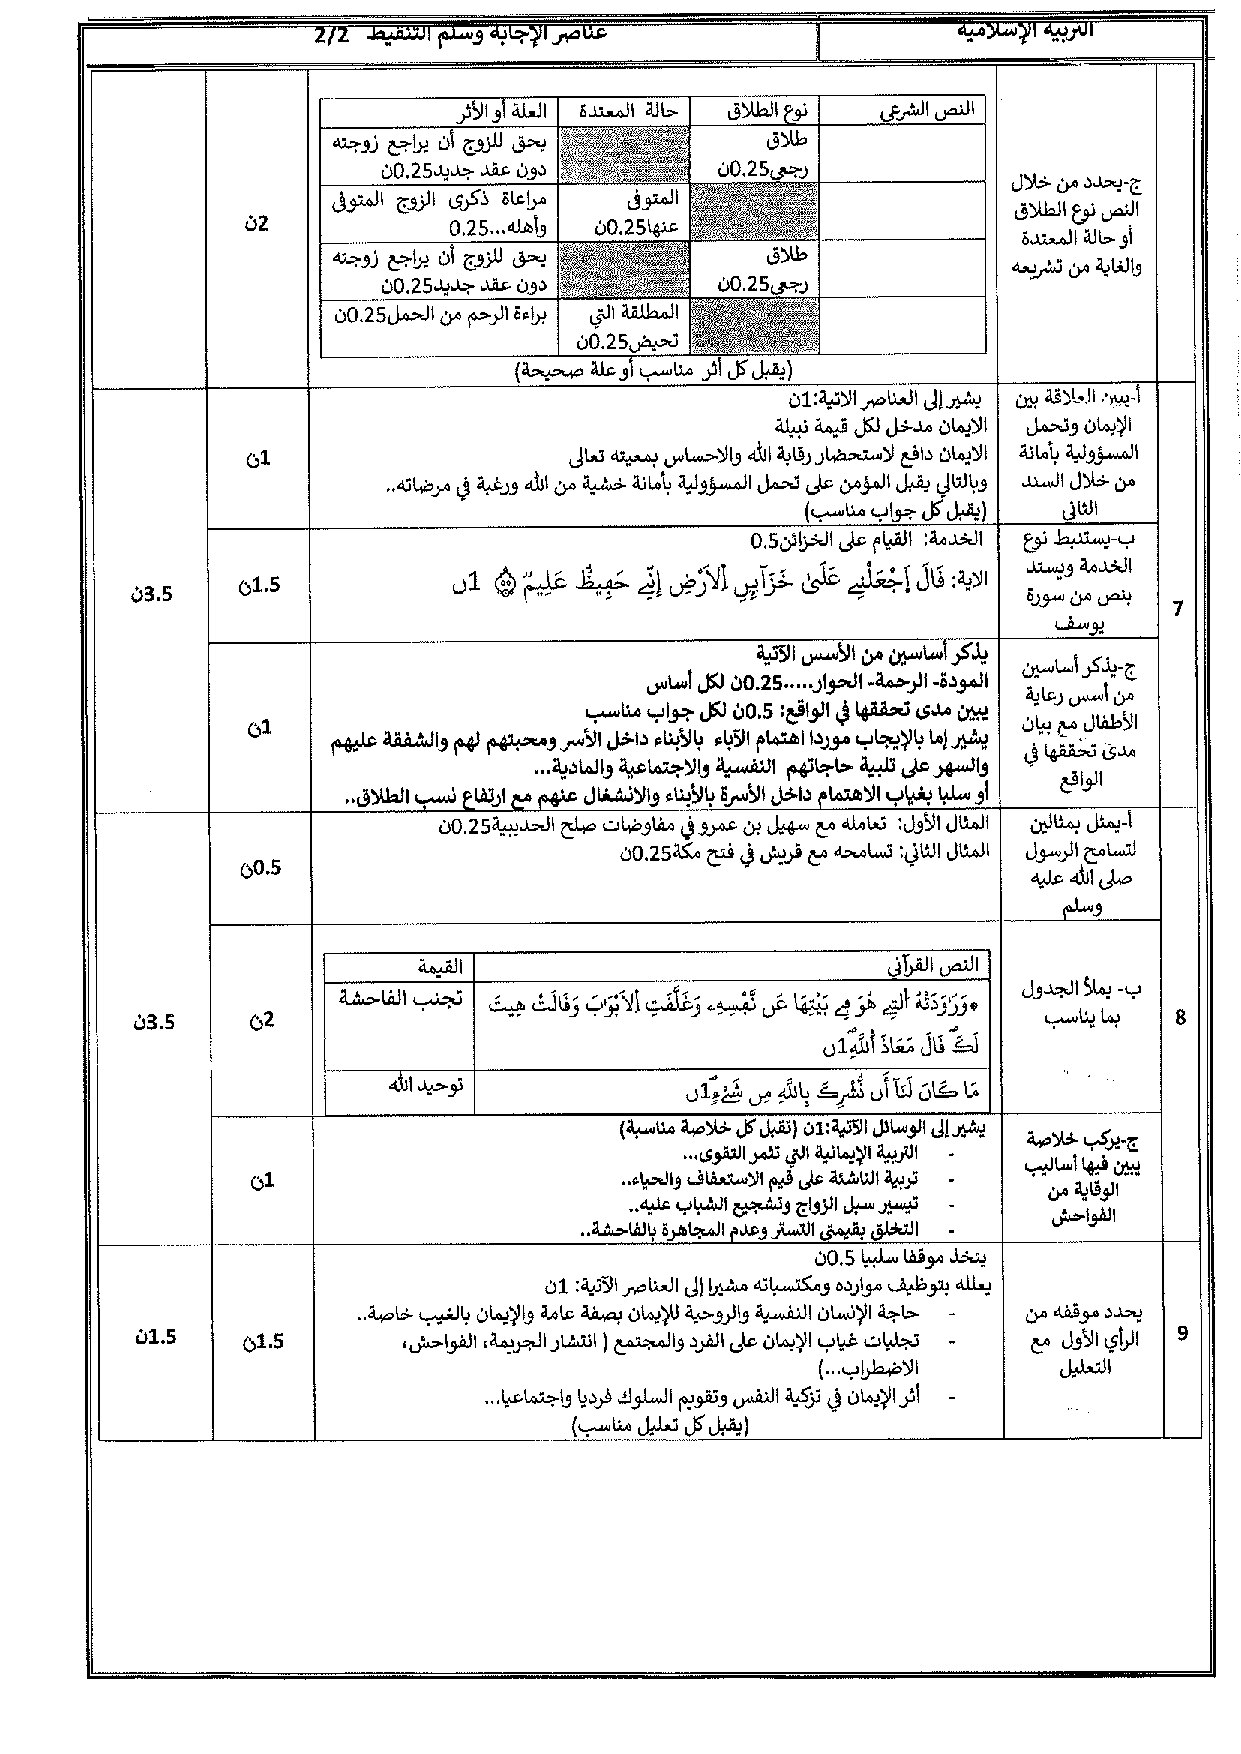 التربية الإسلامية
عناصر الإجابة وسلم التنقيط 2/2
ج-يحدد من خلال
النص نوع الطلاق
أو حالة المعتدة
والغاية من تشريعه
النص الشرعي نوع الطلاق حالة المعتدة العلة أو الأثر
طلاق
رجعي0.25ن
يحق للزوج أن يراجع زوجته
دون عقد جديد0.25ن
المتوفى
عنها0.25ن
مراعاة ذكرى الزوج المتوفى
وأهله...0.25
طلاق
رجعي0.25ن
يحق للزوج أن يراجع زوجته
دون عقد جديد0.25ن
المطلقة التي
تحيض0.25ن
براءة الرحم من الحمل0.25ن
(يقبل كل أثر مناسب أو علة صحيحة)
2ن
7
أ-يبين العلاقة بين
الإيمان وتحمل
المسؤولية بأمانة
من خلال السند
الثاني
يشير إلى العناصر الاتية:1ن
الايمان مدخل لكل قيمة نبيلة
الايمان دافع لاستحضار رقابة الله والاحساس بمعيته تعالى
وبالتالي يقبل المؤمن على تحمل المسؤولية بأمانة خشية من الله ورغبة في مرضاته..
(يقبل كل جواب مناسب)
1ن
ب-يستنبط نوع
الخدمة ويستد
بنص من سورة
يوسف
الخدمة: القيام على الخزائن0.5
الاية: قَالَ اَجْعَلْنِے عَلَىٰ خَزَآئِنِ اِ۬لَارْضِ إِنِّے حَفِيظٌ عَلِيمٌ ۝٥٥ 1ن
1.5ن
ج-يذكر أساسين
من أسس رعاية
الأطفال مع بيان
مدى تحققها في
الواقع
يذكر أساسين من الأسس الآتية
المودة- الرحمة- الحوار.....0.25ن لكل أساس
يبين مدى تحققها في الواقع: 0.5ن لكل جواب مناسب
يشير إما بالإيجاب موردا اهتمام الآباء بالأبناء داخل الأسر ومحبتهم لهم والشفقة عليهم
والسهر على تلبية حاجاتهم النفسية والاجتماعية والمادية...
أو سلبا بغياب الاهتمام داخل الأسرة بالأبناء والانشغال عنهم مع ارتفاع نسب الطلاق..
1ن
3.5ن
8
أ-يمثل بمثالين
لتسامح الرسول
صلى الله عليه
وسلم
المثال الأول: تعامله مع سهيل بن عمرو في مفاوضات صلح الحديبية0.25ن
المثال الثاني: تسامحه مع قريش في فتح مكة0.25ن
0.5ن
ب- يملأ الجدول
بما يناسب
النص القرآني القيمة
*وَرَٰوَدَتْهُ اُ۬لتِے هُوَ فِے بَيْتِهَا عَن نَّفْسِهِۦ وَغَلَّقَتِ اِ۬لَابْوَٰبَ وَقَالَتْ هِيتَ
لَكَۖ قَالَ مَعَاذَ اَ۬للَّهِۖ1ن
تجنب الفاحشة
مَا كَانَ لَنَآ أَن نُّشْرِكَ بِاللَّهِ مِن شَےْءٖۖ1ن
توحيد الله
2ن
ج-يركب خلاصة
يبين فيها أساليب
الوقاية من
الفواحش
يشير إلى الوسائل الآتية:1ن (تقبل كل خلاصة مناسبة)
- التربية الإيمانية التي تثمر التقوى...
- تربية الناشئة على قيم الاستعفاف والحياء..
- تيسير سبل الزواج وتشجيع الشباب عليه..
- التخلق بقيمتي التستر وعدم المجاهرة بالفاحشة..
1ن
3.5ن
9
يحدد موقفه من
الرأي الأول مع
التعليل
يتخذ موقفا سلبيا 0.5ن
يعلله بتوظيف موارده ومكتسباته مشيرا إلى العناصر الآتية: 1ن
- حاجة الإنسان النفسية والروحية للإيمان بصفة عامة والإيمان بالغيب خاصة..
- تجليات غياب الإيمان على الفرد والمجتمع ( انتشار الجريمة، الفواحش،
الاضطراب...)
- أثر الإيمان في تزكية النفس وتقويم السلوك فرديا واجتماعيا...
(يقبل كل تعليل مناسب)
1.5ن
1.5ن